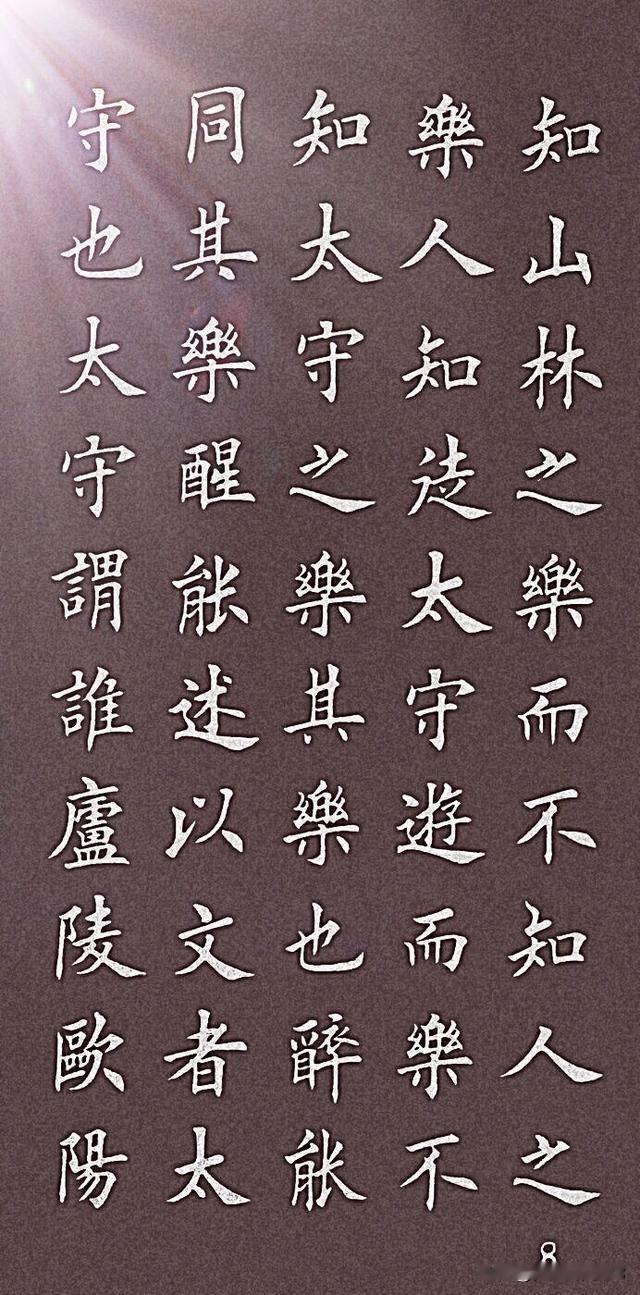 知山林之樂而不知人之
樂人知徒太守遊而樂不
知太守之樂其樂也醉能
同其樂醒能述以文者太
守也太守謂誰盧陵歐陽
8